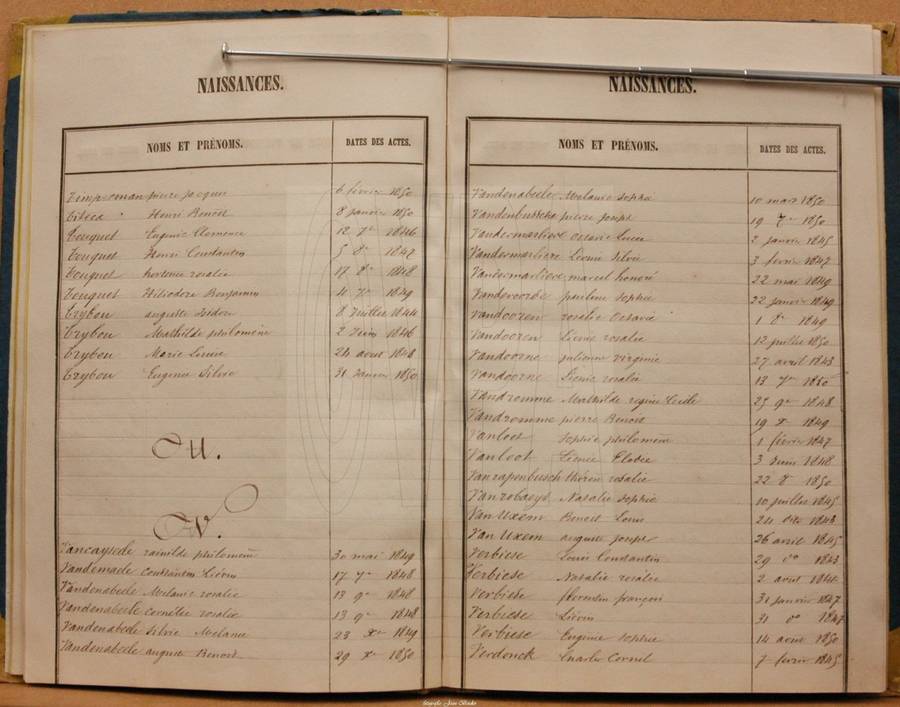 NAISSANCES.
NOMS ET PRÉNOMS. DATES DES ACTES.
pierre 6 février 1850
Henri Benoit 8 janvier 1850
Touquet Eugenie Clemence 12 7re 1846
Touquet Henri Constantin 5 8re 1847
Touquet hortence rosalie 17 8re 1848
Touquet Héliodore Benjamin 4 7re 1849
Trybou auguste isidore 8 juillet 1844
Trybou Mathilde philomene 2 juin 1846
Trybou Marie Louise 24 aout 1848
Trybou Eugenie Silvie 31 janvier 1850
U.
V.
rainilde philomene 30 mai 1849
Vandemaele Constantin Liévin 17 7re 1848
Vandenabeele Melanie rosalie 13 9re 1848
Vandenabeele Cornélie rosalie 13 9re 1848
Vandenabeele Silvie Melanie 23 xre 1849
Vandenabeele auguste Benoit 29 xre 1850
NAISSANCES.
NOMS ET PRÉNOMS. DATES DES ACTES.
Vandenabeele Melanie Sophie 10 mars 1850
Vandenbussche pierre joseph 19 7re 1850
Vandermarliere Octavie Lucie 2 janvier 1845
Vandermarliere Léonie Silvie 3 février 1847
Vandermarliere marcel honoré 22 mai 1849
pauline Sophie 22 janvier 1849
Vandooren rosalie Octavie 1 8re 1849
Vandooren Léonie rosalie 12 juillet 1850
Vandoorne julienne virginie 27 avril 1843
Vandoorne Léonie rosalie 13 7re 1850
Vandromme Mathilde regine Cecile 25 9re 1848
Vandromme pierre Benoit 19 xre 1849
Vanloot Sophie philomene 1 février 1847
Vanloot Léonie Elodie 3 juin 1848
rosalie 22 8re 1850
Natalie Sophie 10 juillet 1845
Van Uxem Benoit Louis 24
Van Uxem auguste joseph 26 avril 1845
Verbiese Louis Constantin 29 1843
Verbiese Natalie rosalie 2
Verbiese florentin françois 31 janvier 1847
Verbiese Liévin 31 do 1847
Verbiese Eugenie Sophie 14 aout 1850
Verdonck Charles Cornil 7 février 1845